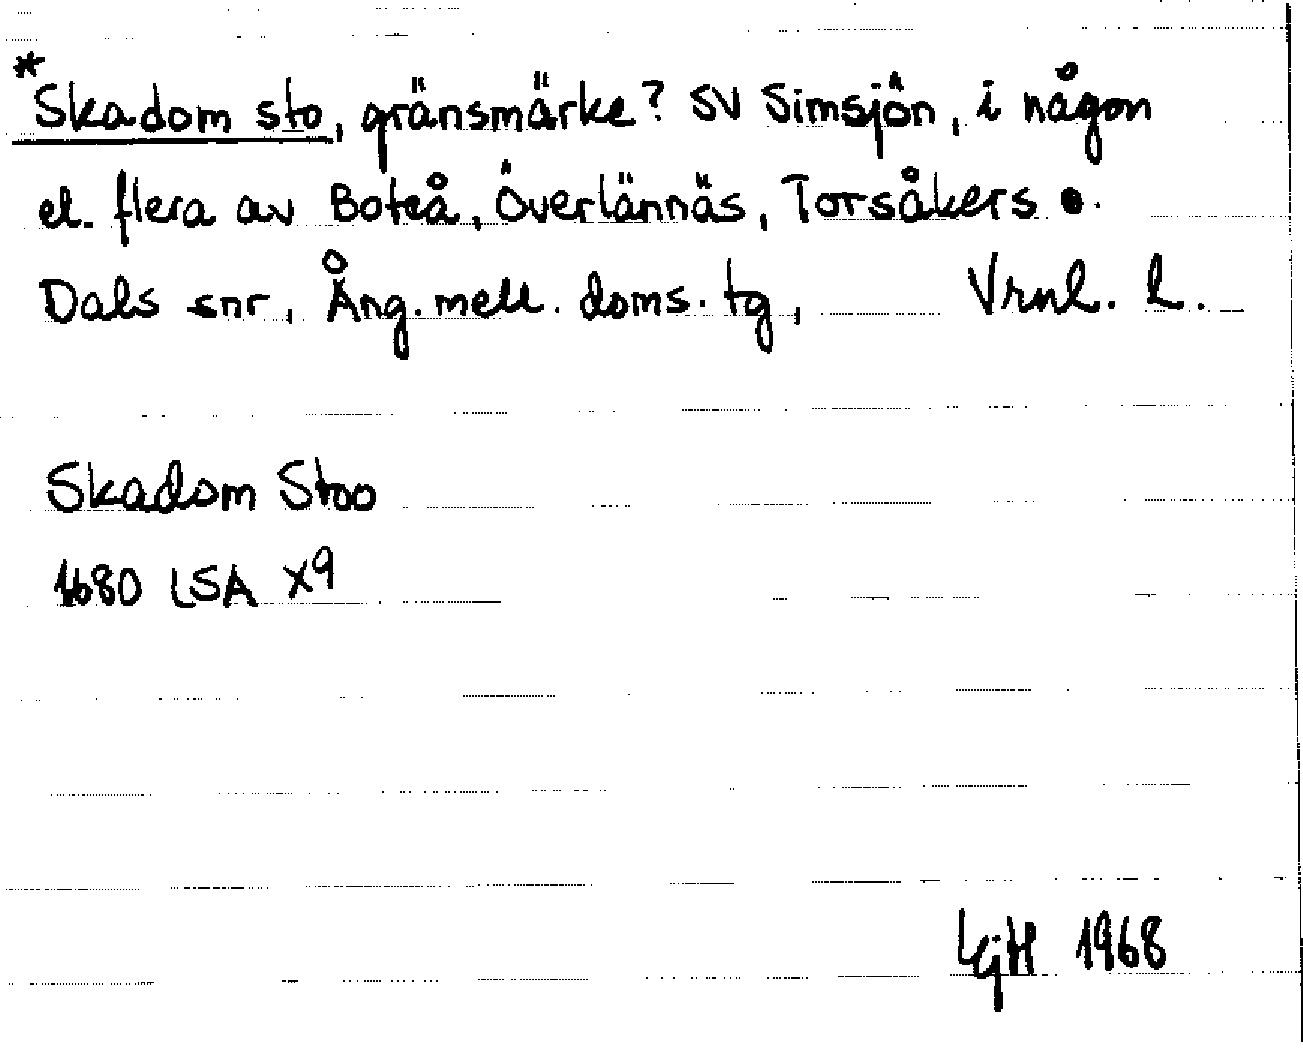 *Skadom sto, gränsmärke? SV Simsjön, i någon
el. flera av Boteå, Överlännäs, Torsåkers o.
Dals snr, Ång. mell. doms. tg, Vrnl. l.
Skadom Stoo
1680 LSA X9
LgH 1968